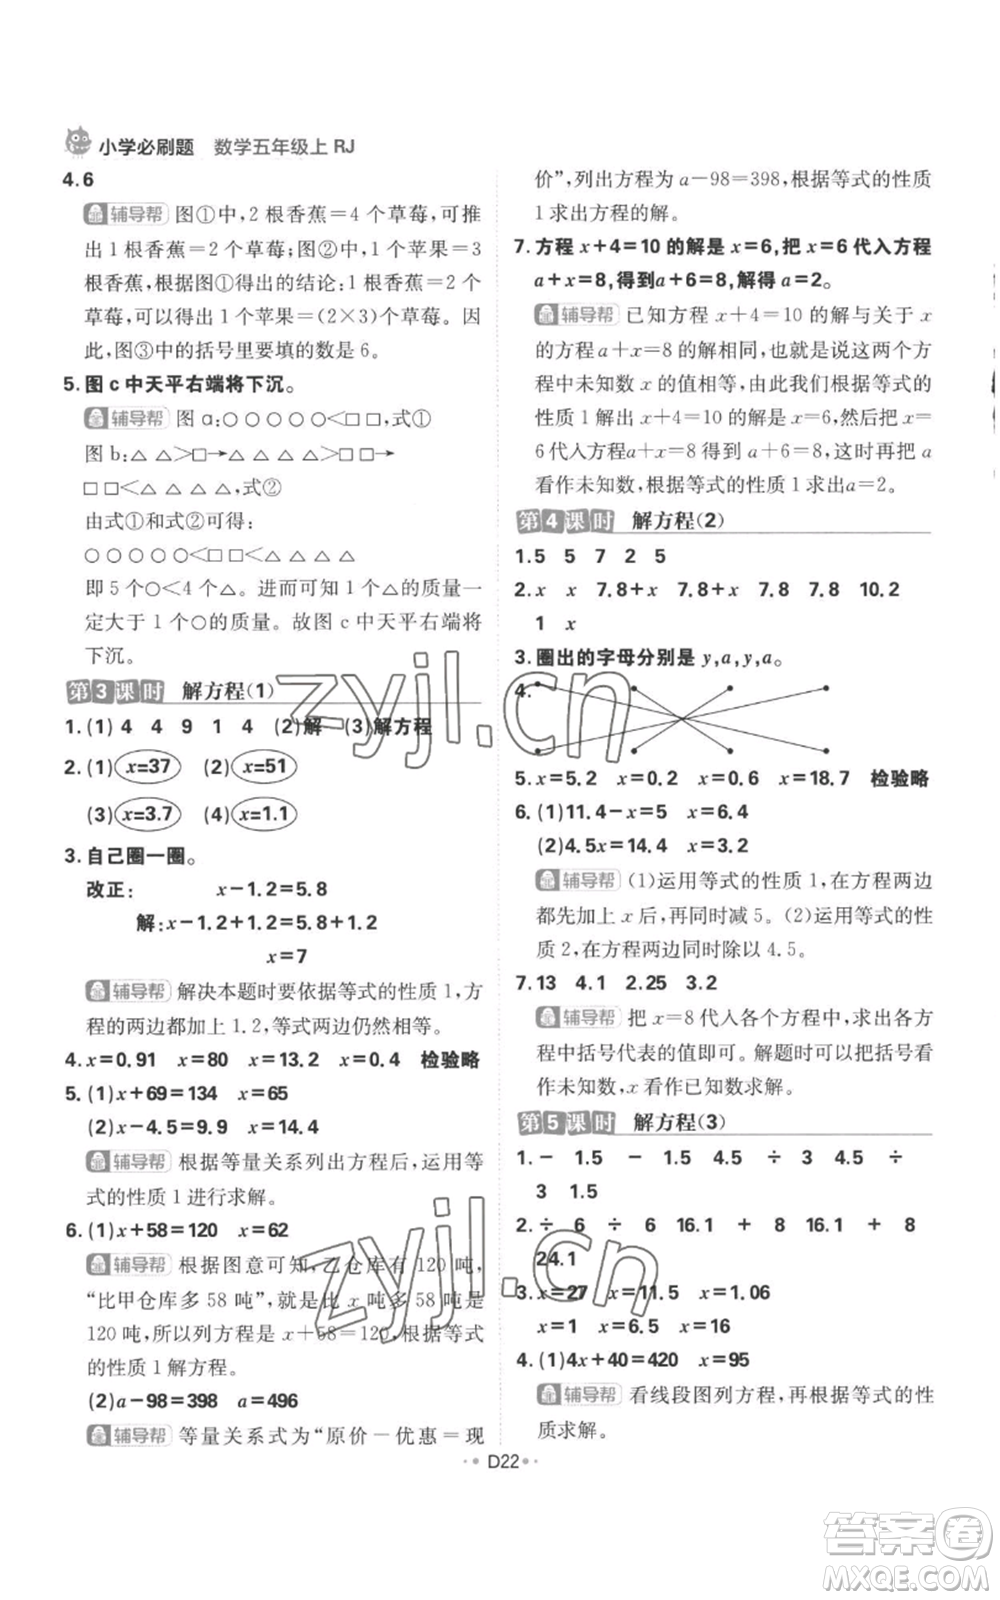 小学必刷题 数学五年级上 RJ
4.6
辅导帮 图①中,2根香蕉=4个草莓,可推
出1根香蕉=2个草莓;图②中,1个苹果=3
根香蕉,根据图①得出的结论:1根香蕉=2个
草莓,可以得出1个苹果=(2×3)个草莓。因
此,图③中的括号里要填的数是6。
5.图c中天平右端将下沉。
辅导帮 图a:○○○○○<□□,式①
图b:△△>□→△△△△>□□→
□□<△△△△,式②
由式①和式②可得:
○○○○○<□□<△△△△
即5个○<4个△。进而可知1个△的质量一
定大于1个○的质量。故图c中天平右端将
下沉。
第3课时 解方程(1)
1.(1)4 4 9 1 4 (2)解 (3)解方程
2.(1)x=37 (2)x=51
(3)x=3.7 (4)x=1.1
3.自己圈一圈。
改正: x-1.2=5.8
解:x-1.2+1.2=5.8+1.2
x=7
辅导帮 解决本题时要依据等式的性质1,方
程的两边都加上1.2,等式两边仍然相等。
4.x=0.91 x=80 x=13.2 x=0.4 检验略
5.(1)x+69=134 x=65
(2)x-4.5=9.9 x=14.4
辅导帮 根据等量关系列出方程后,运用等
式的性质1进行求解。
6.(1)x+58=120 x=62
辅导帮 根据图意可知,乙仓库有120吨,
“比甲仓库多58吨”,就是比x吨多58吨是
120吨,所以列方程为x+58=120,根据等式
的性质1解方程。
(2)a-98=398 a=496
辅导帮 等量关系式为“原价-优惠=现
价”,列出方程为a-98=398,根据等式的性质
1求出方程的解。
7.方程x+4=10的解是x=6,把x=6代入方程
a+x=8,得到a+6=8,解得a=2。
辅导帮 已知方程x+4=10的解与关于x
的方程a+x=8的解相同,也就是说这两个方
程中未知数x的值相等,由此我们根据等式的
性质1解出x+4=10的解是x=6,然后把x=
6代入方程a+x=8得到a+6=8,这时再把a
看作未知数,根据等式的性质1求出a=2。
第4课时 解方程(2)
1.5 5 7 2 5
2.x x 7.8+x 7.8+x 7.8 10.2
1 x
3.圈出的字母分别是y,a,y,a。
4.
5.x=5.2 x=0.2 x=0.6 x=18.7 检验略
6.(1)11.4-x=5 x=6.4
(2)4.5x=14.4 x=3.2
辅导帮 (1)运用等式的性质1,在方程两边
都先加上x后,再同时减5。(2)运用等式的性
质2,在方程两边同时除以4.5。
7.13 4.1 2.25 3.2
辅导帮 把x=8代入各个方程中,求出各方
程中括号代表的值即可。解题时可以把括号看
作未知数,x看作已知数求解。
第5课时 解方程(3)
1.- 1.5 - 1.5 4.5 ÷ 3 4.5 ÷
3 1.5
2.÷ 6 ÷ 6 16.1 + 8 16.1 + 8
24.1
3.x=27 x=11.5 x=1.06
x=1 x=6.5 x=16
4.(1)4x+40=420 x=95
辅导帮 看线段图列方程,再根据等式的性
质求解。
D22
zyjl.cn
zyjl.cn
答案卷
MXQE.COM